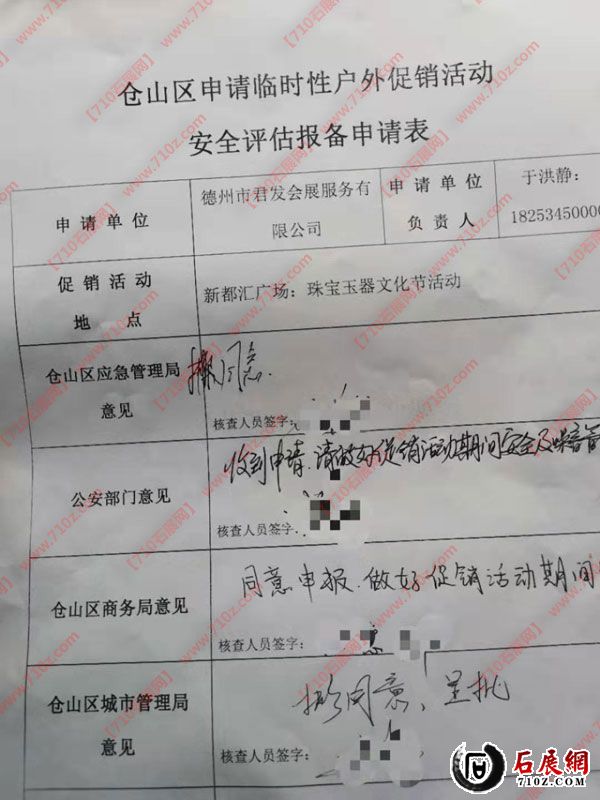 仓山区申请临时性户外促销活动
安全评估报备申请表
申请单位
德州市君发会展服务有
限公司
申请单位
负责人
于洪静：
1825345000
促销活动
地 点
新都汇广场：珠宝玉器文化节活动
仓山区应急管理局
意见
拟同意.
核查人员签字：
公安部门意见
收到申请.请做好促销活动期间安全及噪音管
核查人员签字：
仓山区商务局意见
同意申报.做好促销活动期间
核查人员签字：
仓山区城市管理局
意见
拟同意、呈批
核查人员签字：
石展網
710Z.COM
【710石展网】
www.710z.com